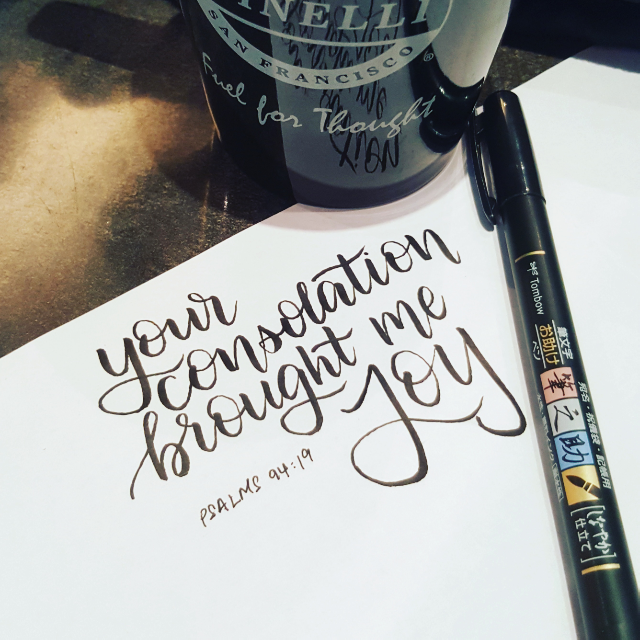 INELLI
SAN FRANCISCO®
Fuel for Thought
your
consolation
brought me
JOY
PSALMS 94:19
Tombow
筆文字
お助け
ペン
筆之助
しなやか
仕立て